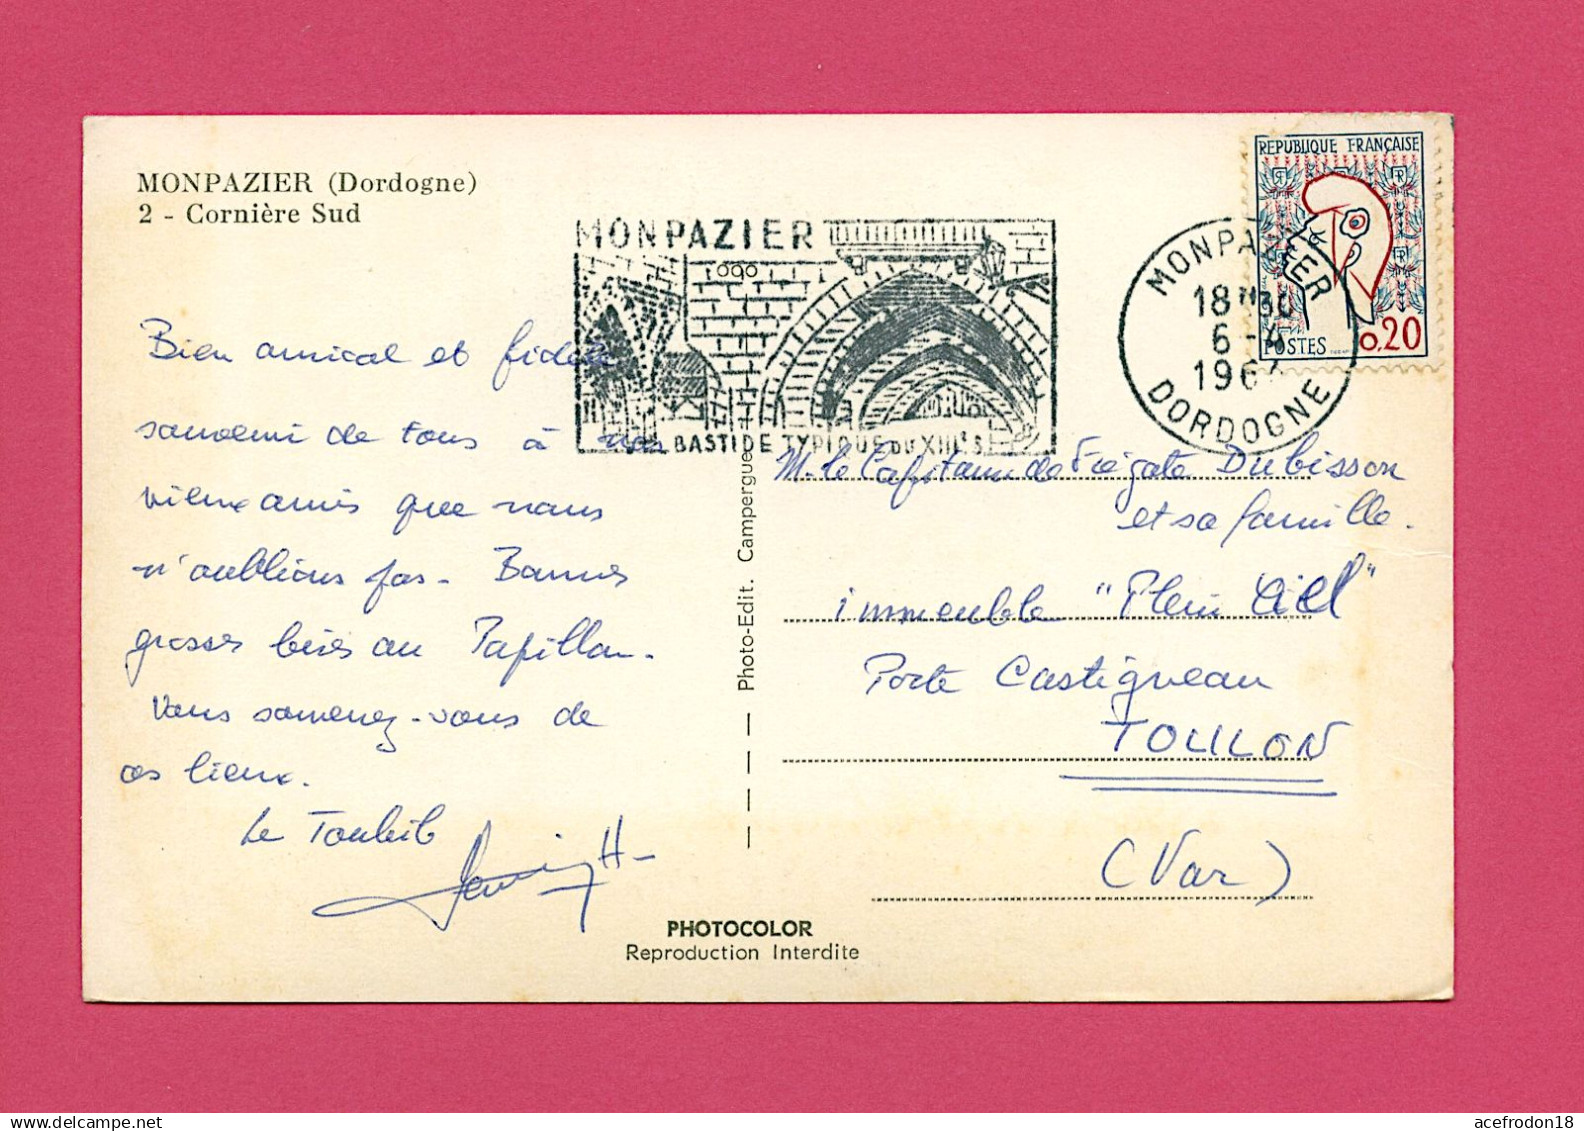 MONPAZIER (Dordogne)
2 - Cornière Sud
MONPAZIER
BASTIDE TYPIQUE DU XIIIe S
MONPAZIER
18 H 30
6 -
196
DORDOGNE
REPUBLIQUE FRANÇAISE
POSTES
0,20
Bien amical et fidèle
souvenir de tous à nos
vieux amis que nous
n'oublions pas - Bonnes
grosses bises au Papillon.
Vous souvenez-vous de
ces lieux.
Le Toubib
M. le Capitaine de Frégate Dubisson
et sa famille.
immeuble "Plein Ciel"
Porte Castigneau
TOULON
(Var)
Photo-Edit. Campergue
PHOTOCOLOR
Reproduction Interdite
acefrodon18